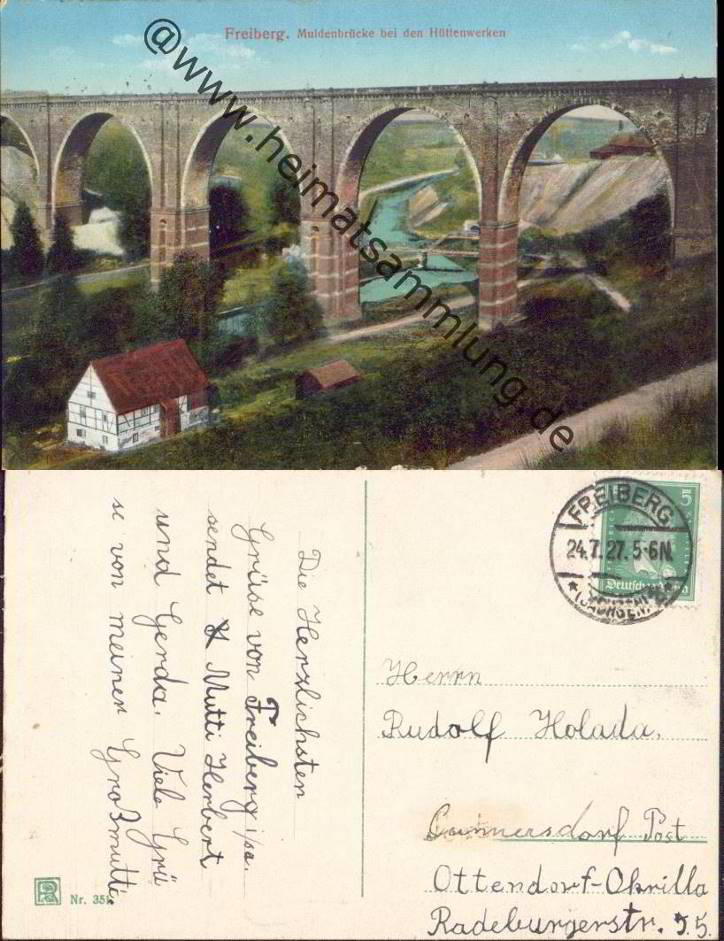 Freiberg. Muldenbrücke bei den Hüttenwerken
@www.heimatsammlung.de
FREIBERG
24.7.27. 5-6N.
(SACHSEN)
5
Die Herzlichsten
Grüse von Freiberg i/sa.
sendet Mutti Herbert
und Gerda. Viele Grü
se von meiner Großmutti.
Herrn
Rudolf Holada.
Cunnersdorf Post
Ottendorf-Okrilla
Radeburgerstr.
Nr. 351